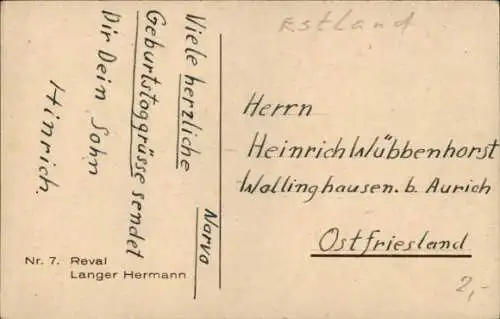 Estland
Viele herzliche
Geburtstoggrüsse sendet
Dir Dein Sohn
Hinrich.
Narva
Herrn
Heinrich Wübbenhorst
Wallinghausen. b. Aurich
Ostfriesland
Nr. 7. Reval
Langer Hermann
2,-